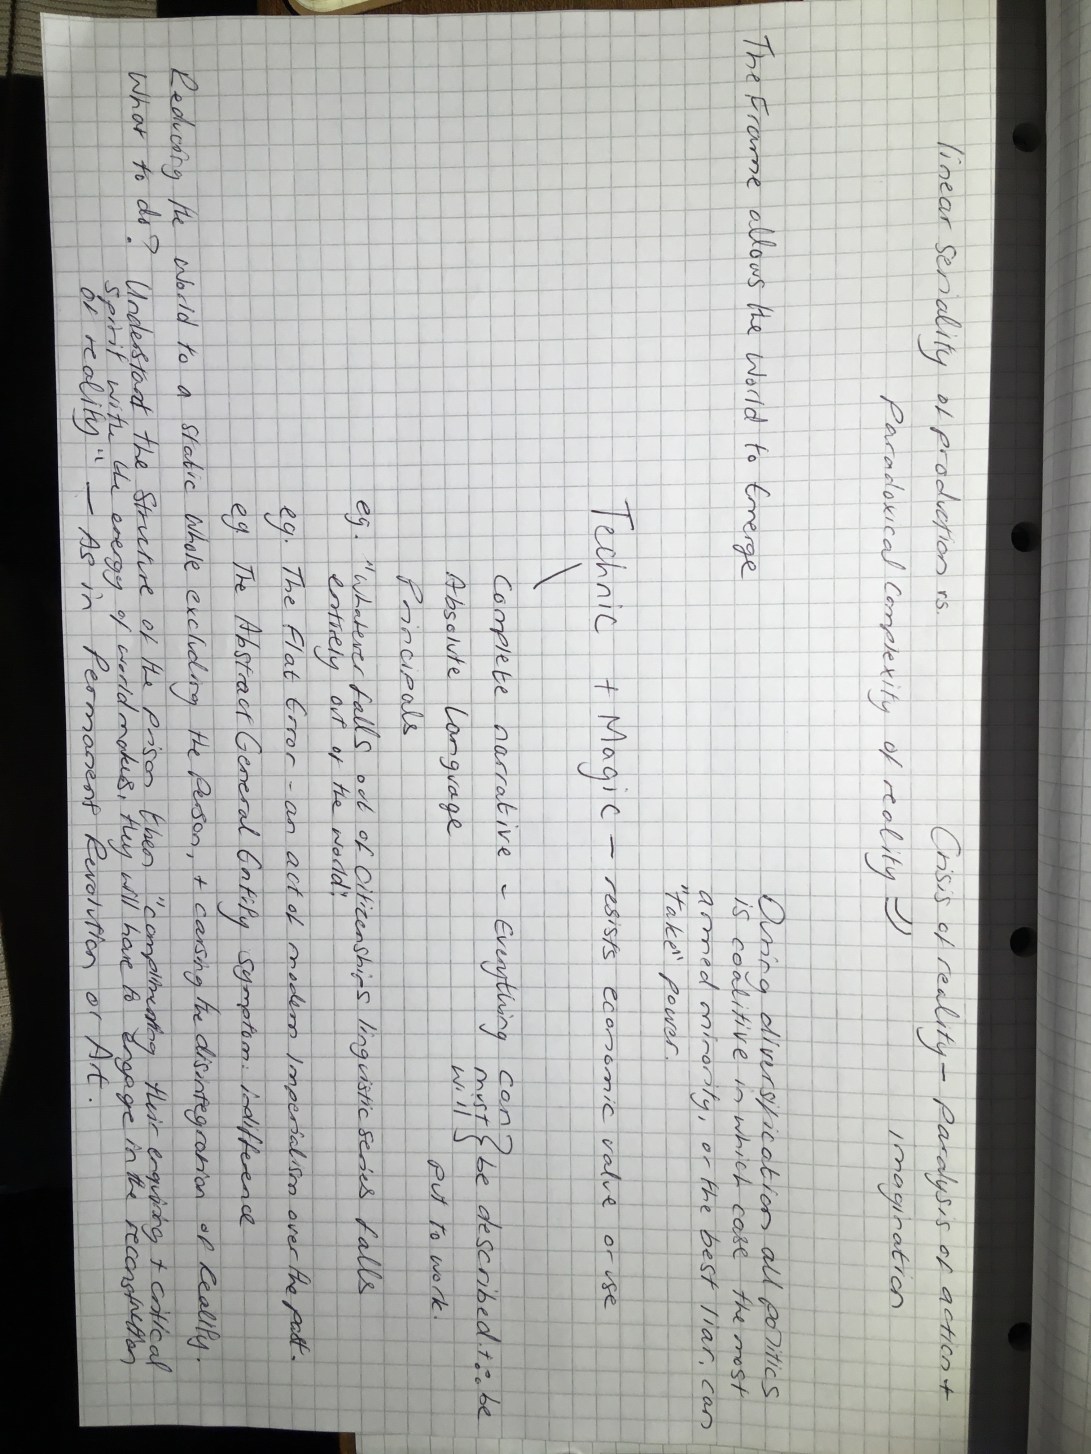 linear seriality of production vs.
Paradoxical Complexity of reality
Crisis of reality - Paralysis of action +
imagination
The Frame allows the World to Emerge
During diversification all politics
is coalitive in which case the most
armed minority, or the best liar, can
"take" power.
Technic + Magic - resists economic value or use
Complete narrative - Everything can must will } be described ∴ be
put to work.
Absolute Language
Principals
eg. "Whatever falls out of Citizenships linguistic series falls
entirely out of the world."
eg. The Flat Error - an act of modern Imperialism over the past.
eg The Abstract General Entity symptom: indifference
Reducing the World to a static whole excluding the Person, + causing the disintegration of Reality.
What to do? Understand the Structure of the prison then "complimenting their enquiring + critical
spirit with the energy of world makers, they will have to engage in the reconstruction
of reality" - As in Permanent Revolution or Art.